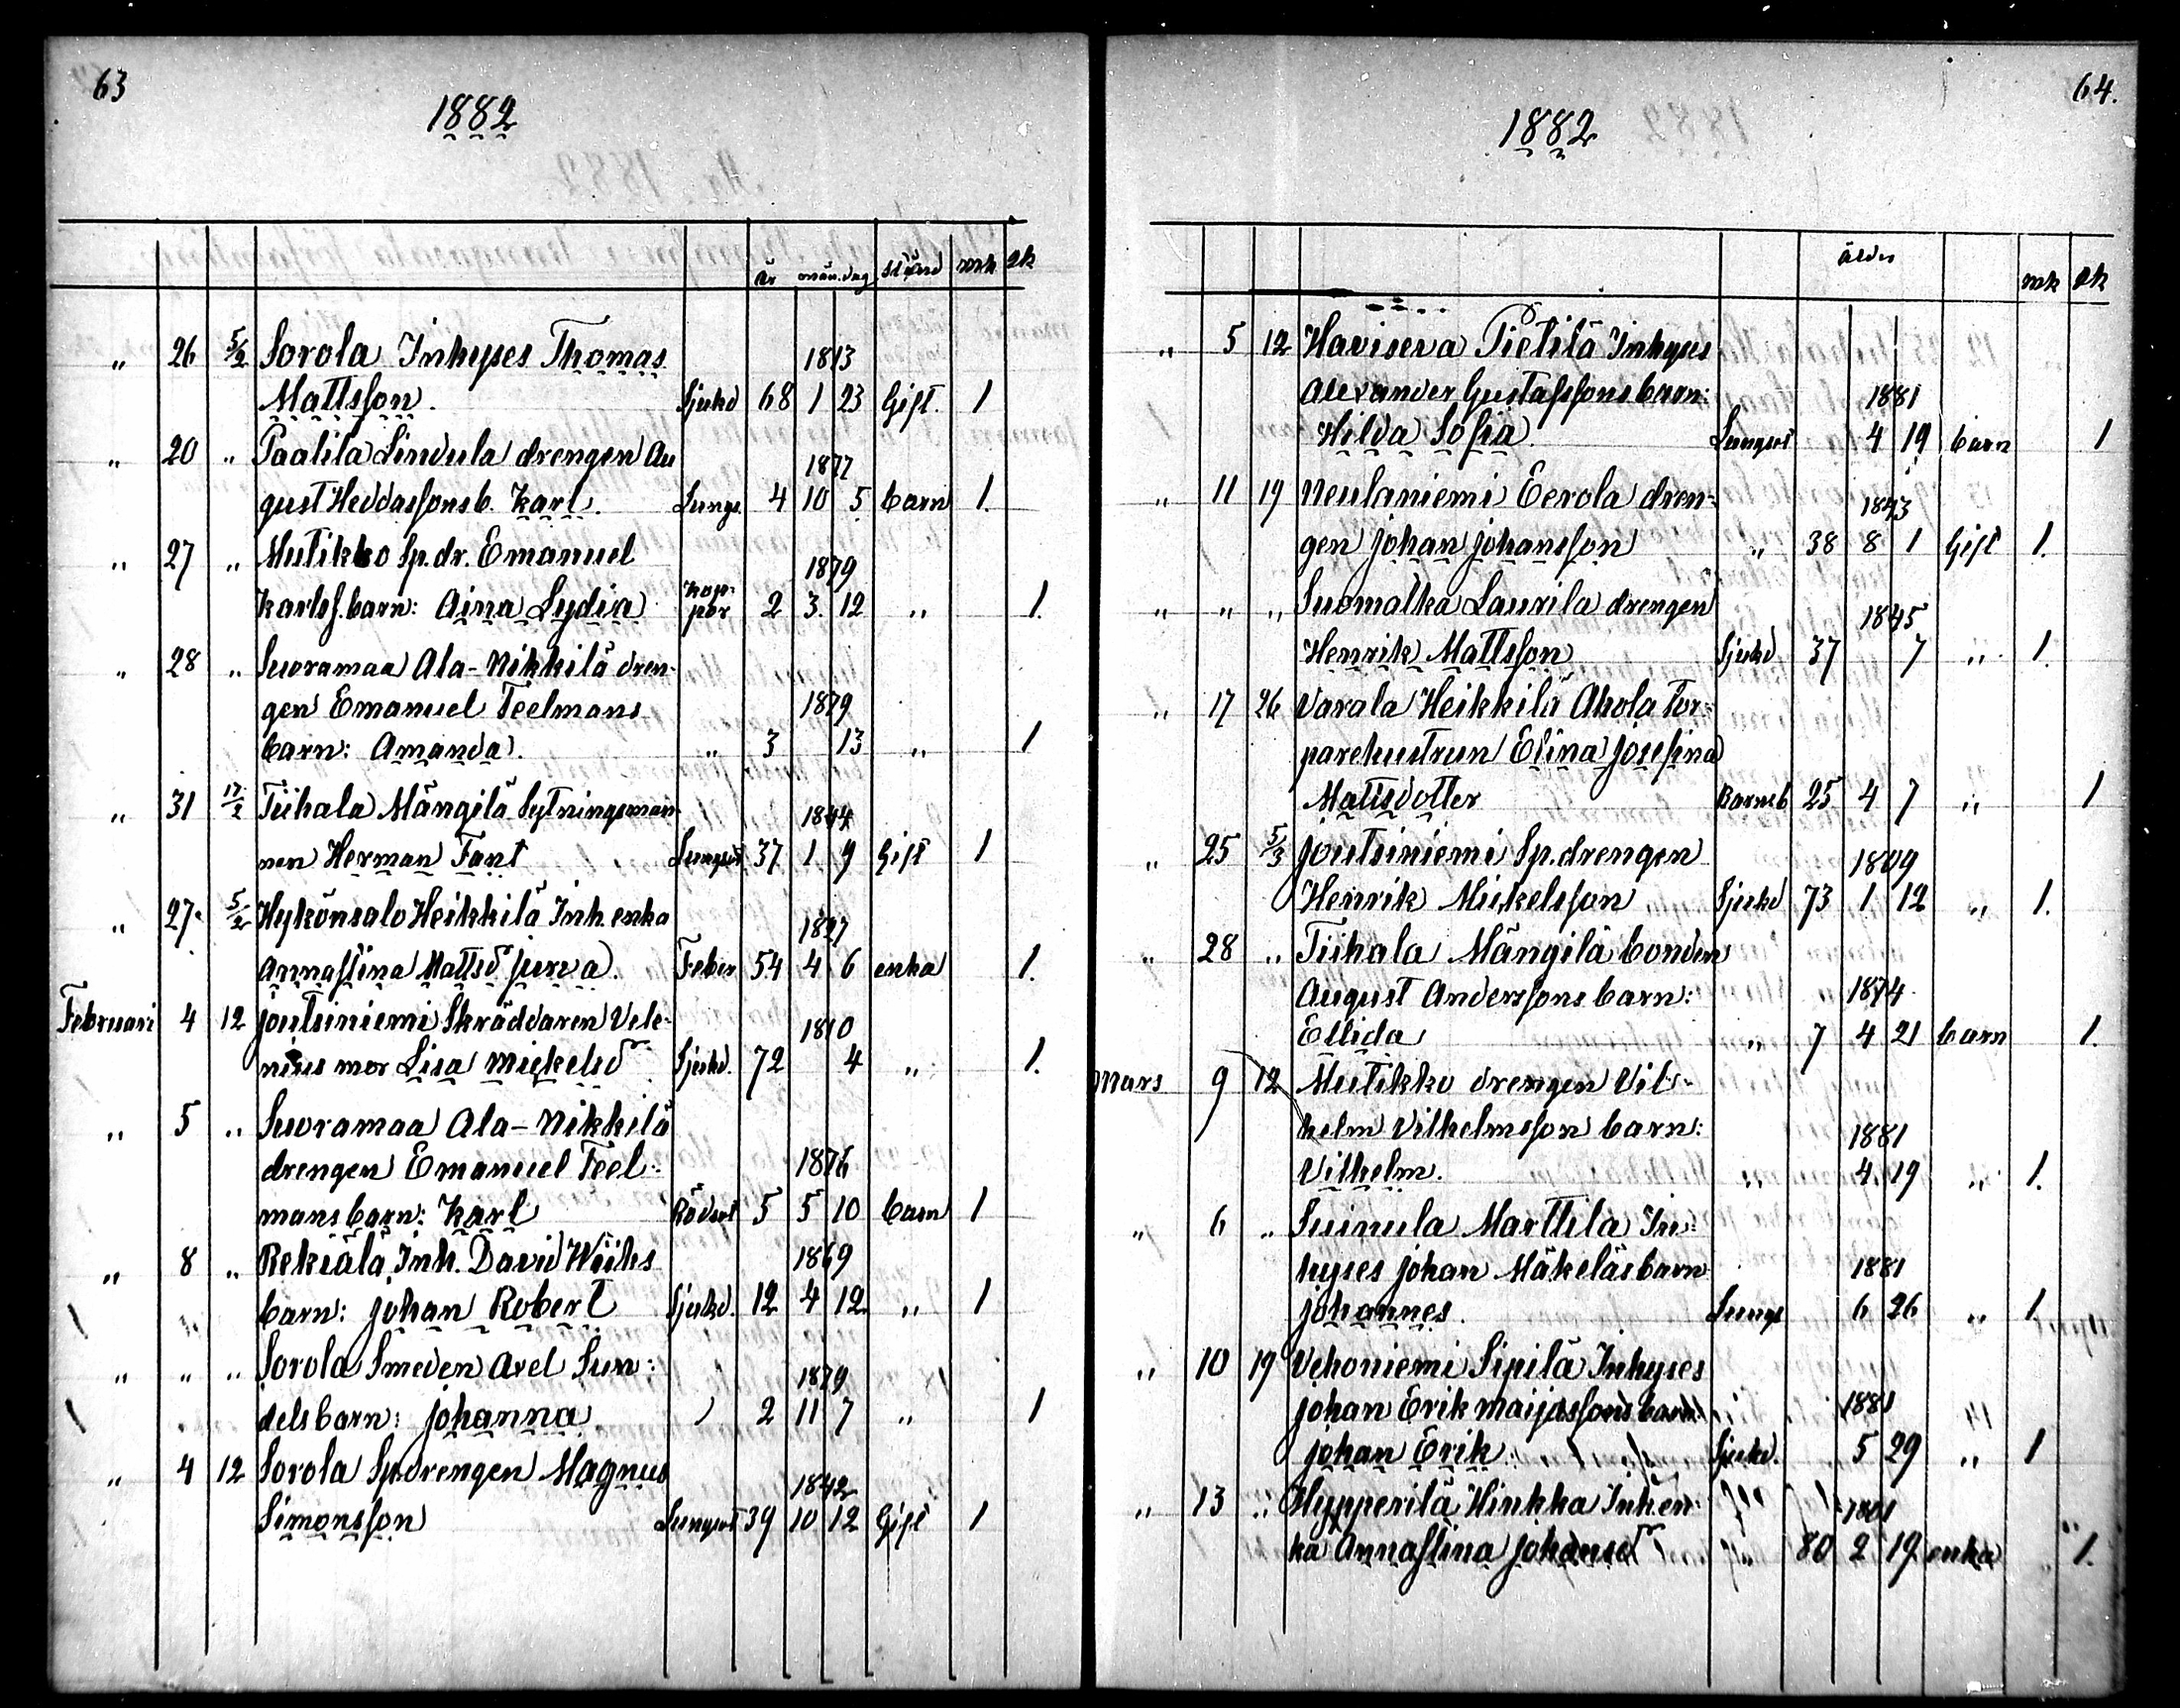 63
1882
år mån. dag stånd mk qk
„ 26 5/2 Sorola Inhyses Thomas 1813
Mattsson. Sjukd 68 1 23 Gift. 1
„ 20 „ Paalila Lindula drengen Au 1877
gust Heddassons b. Karl. Lungs. 4 10 5 barn 1.
„ 27 „ Mutikko Sp. dr. Emanuel 1879
Karlss. barn: Aina Lydia Koppor 2 3. 12 „ 1.
„ 28 „ Suoramaa Ala-Nikkilä dren-
gen Emanuel Feelmans 1879
barn: Amanda. „ 3 13 „ 1
„ 31 17/2 Tiihala Mängilä Sytningsman- 1844
nen Herman Fant Lungsot 37 1 9 Gift 1
„ 27. 5/2 Hykönsalo Heikkilä Inh. enka 1827
Annastina Mattsd Jurva. Feber 54 4 6 enka 1.
Februari 4 12 Joutsiniemi Skräddaren Vele- 1810
nius mor Lisa Mickelsd Sjukd. 72 4 „ 1.
„ 5 „ Suoramaa Ala-Nikkilä
drengen Emanuel Feel- 1876
mans barn: Karl Rödsot 5 5 10 barn 1
„ 8 „ Rekiälä Inh. David Wiiks 1869
barn: Johan Robert Sjukd. 12 4 12 „ 1
„ „ „ Sorola Smeden Axel Sun- 1879
dels barn: Johanna 2 11 7 „ 1
„ 4 12 Sorola Sp. drengen Magnus 1842
Simonsson Lungsot 39 10 12 Gift 1
64.
1882
ålder mk qk
„ 5 12 Haviseva Pietilä Inhyses
Alexander Gustafssons barn: 1881
Hilda Sofia. Lungsot 4 19 barn 1
„ 11 19 Neulaniemi Eerola dren- 1843
gen Johan Johansson „ 38 8 1 Gift 1.
„ „ „ Suomatka Laurila drengen 1845
Henrik Mattsson Sjukd 37 7 „ 1.
„ 17 26 Varala Heikkilä Ahola Tor-
parehustrun Elina Josefina
Mattsdotter Barnsb 25 4 7 „ 1
„ 25 5/3 Joutsiniemi Sp. drengen 1809
Henrik Mickelsson Sjukd 73 1 12 „ 1.
„ 28 „ Tiihala Mängilä bonden
August Anderssons barn: 1874
Ellida „ 7 4 21 barn 1.
Mars 9 12 Mutikko drengen Vil-
helm Vilhelmsson barn: 1881
Vilhelm. „ 4 19 „ 1.
„ 6 „ Suinula Marttila In-
hyses Johan Mäkeläs barn 1881
Johannes. Lungs 6 26 „ 1.
„ 10 19 Vehoniemi Sipilä Inhyses
Johan Erik Maijassons barn: 1881
Johan Erik Sjukd. 5 29 „ 1
„ 13 „ Hypperilä Hinkka Inh. en- 1801
ka Annastina Johansd „ 80 2 19 enka 1.